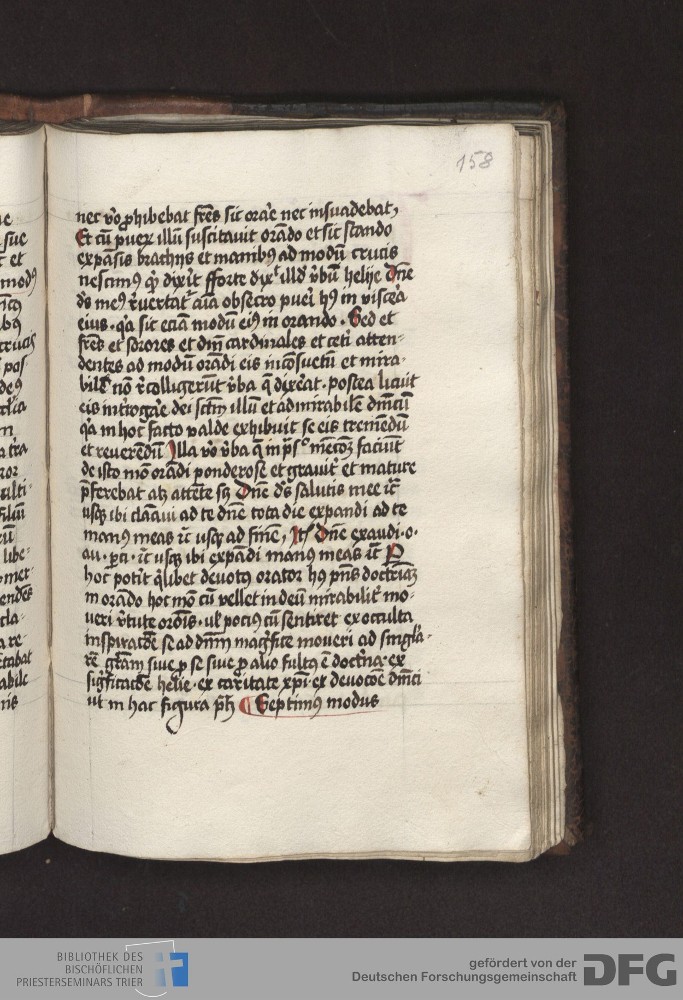 158
nec v̄o ꝓhibebat frēs sic orār̄e nec insuadebat,
Et cū puer illū suscitauit orādo et sic stando
expāsis brachijs et manibꝰ ad modū crucis
nescimꝰ qͥ dixit fforte dixͭ illd v̄bū helije Dn̄e
ds̄ meꝰ reuertatͬ aīa obsecro pueri hꝰ in viscera
eius. qa sic eciā modū eiꝰ in orando. Sed et
frēs et sorores et dn̄i cardinales et ceti atten-
dentes ad modū orādi eis incōsuetū et mira-
bilē nō recolligerūt v̄ba q̄ dixerat. postea licuit
eis int̄rogare dei sctm̄ illū et admirabilē dn̄icū
qa in hoc facto valde exhibuit se eis tremēdū
et reuerēdū Illa v̄o v̄ba q̄ in ps̄ mēcōꝫ faciūt
de isto mō orādi ponderose et grauit̄ et mature
p̄ferebat atꝫ attēte sꝫ Dn̄e ds̄ salutis mee ic̄
usqꝫ ibi clamaui ad te dn̄e tota die expandi ad te
manꝰ meas ic̄ usqꝫ ad finē, Itē Dn̄e exaudi .o.
au. pc̄i. ic̄ usqꝫ ibi expādi manꝰ meas ic̄ P
hoc potit̄ qͥlibet deuotꝰ orator hꝰ pn̄s doctrīaꝫ
in orādo hoc mō cū vellet in deū mirabilit̄ mo-
ueri v̄tute orōis. ul̄ pociꝰ cū sentiret ex occulta
inspiracōe se ad dn̄m magͥfice moueri ad singla-
rē grām siue p se siue p alio fultꝰ ē doctrīa ex
sigͥficacōe helie. ex caritate xp̄i. ex deuocōe dn̄ici
ut in hac figura ph̄ Septimꝰ modus
sue
et
modꝰ
crucis
BIBLIOTHEK DES
BISCHÖFLICHEN
PRIESTERSEMINARS TRIER
gefördert von der
Deutschen Forschungsgemeinschaft
DFG